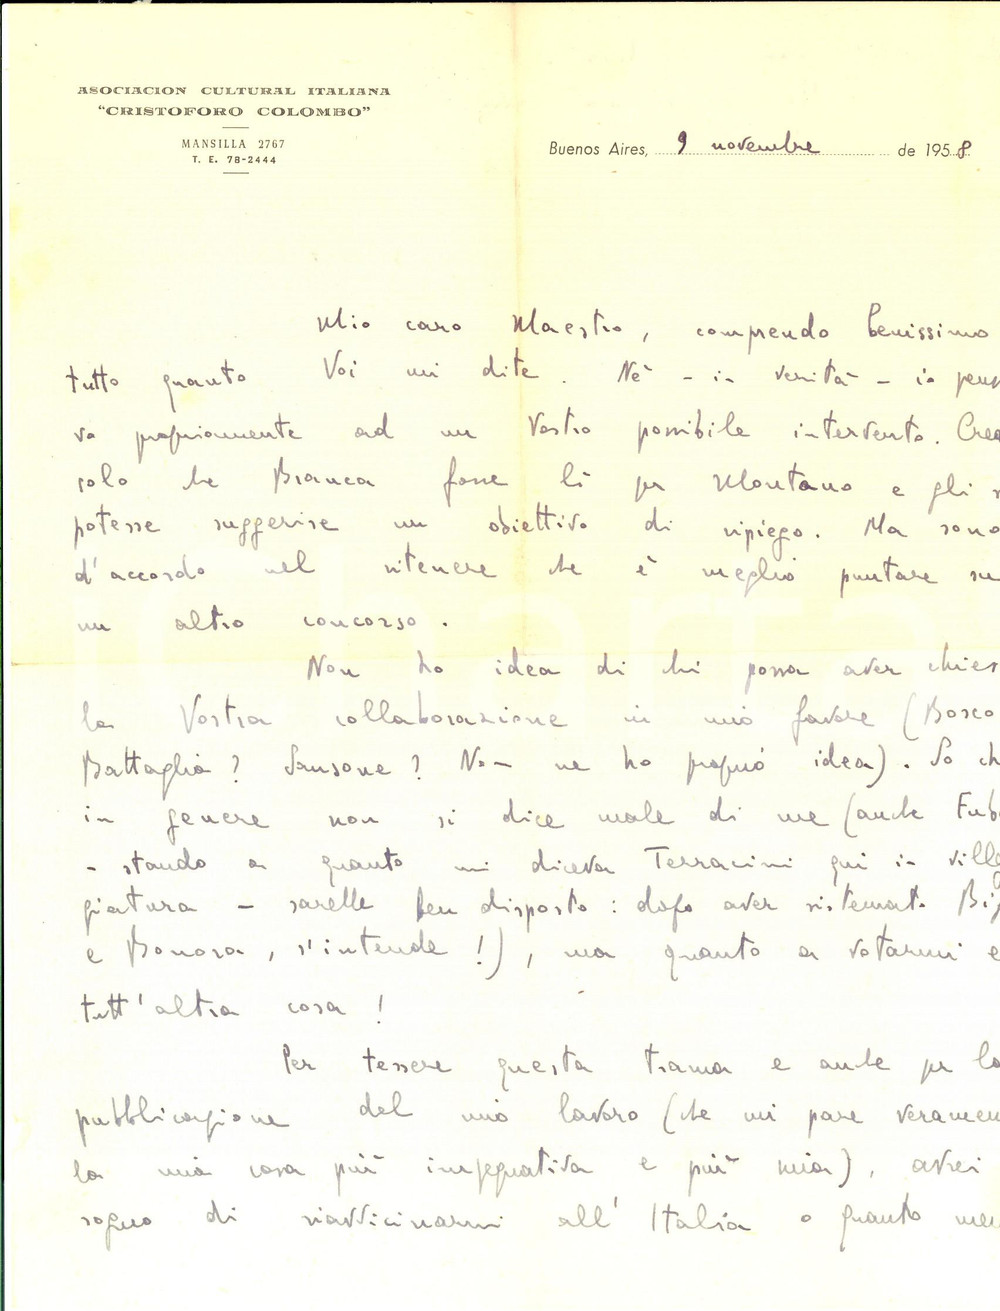 ASOCIACION CULTURAL ITALIANA
"CRISTOFORO COLOMBO"
MANSILLA 2767
T. E. 78-2444
Buenos Aires, 9 novembre de 1958.
Mio caro Maestro, comprendo benissimo
tutto quanto Voi mi dite. Nè - in verità - io pens
vo propriamente ad un Vostro possibile intervento. Crede
solo che Branca fosse lì per Montano e gli
potesse suggerire un obiettivo di ripiego. Ma sono
d'accordo nel ritenere che è meglio puntare su
un altro concorso.
Non ho idea di chi possa aver chies
la Vostra collaborazione in mio favore (Bosco
Battaglia? Sansone? Non ne ho proprio idea). So ch
in genere non si dice male di me (anche Fub
- stando a quanto mi diceva Terracini qui in ville
giatura - sarebbe ben disposto: dopo aver sistemato Big
e Bonora, s'intende!), ma quanto a votarmi è
tutt'altra cosa!
Per tessere questa trama e anche per la
pubblicazione del mio lavoro (che mi pare veramen
la mia cosa più impegnativa e più mia), avrei
sogno di riavvicinarmi all'Italia o quanto men